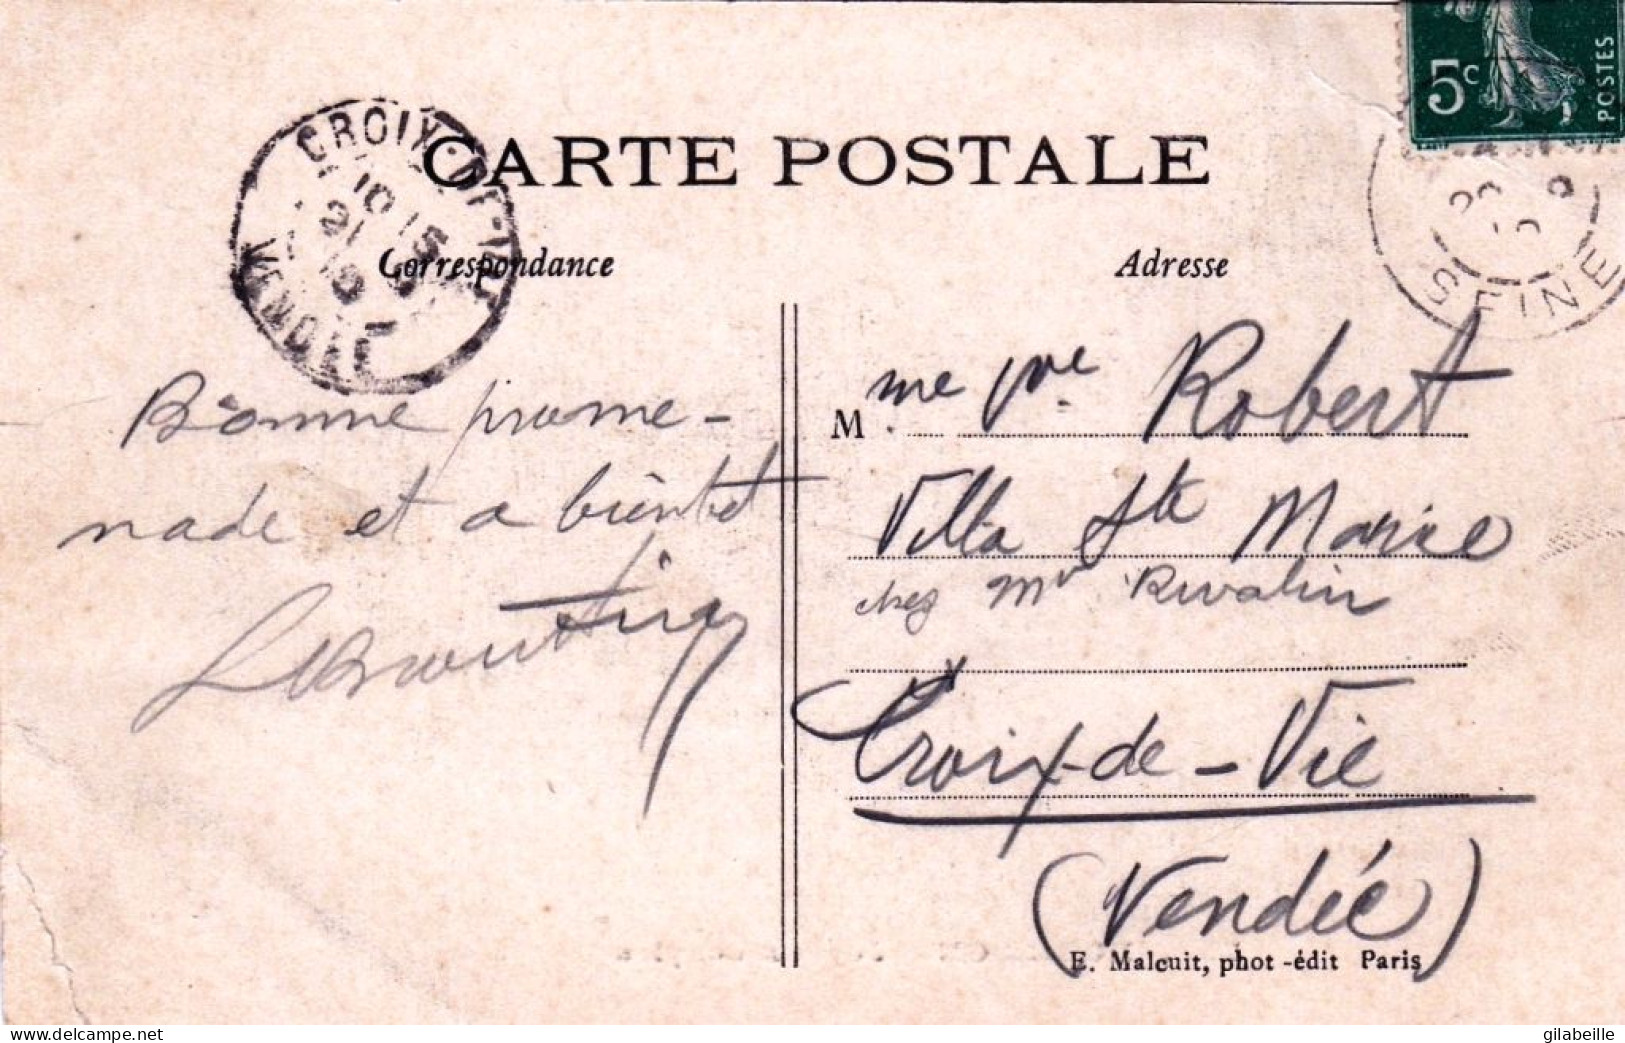 CARTE POSTALE
5c
POSTES
CROIX-DE-VIE
10 15
21
10
VENDÉE
SEINE
Correspondance
Adresse
Bonne prome-
nade et a bientot
M me Vve Robert
Villa Ste Marie
chez Mr Rivalin
Croix-de-Vie
(Vendée)
E. Malcuit, phot-édit Paris
delcampe.net
gilabeille